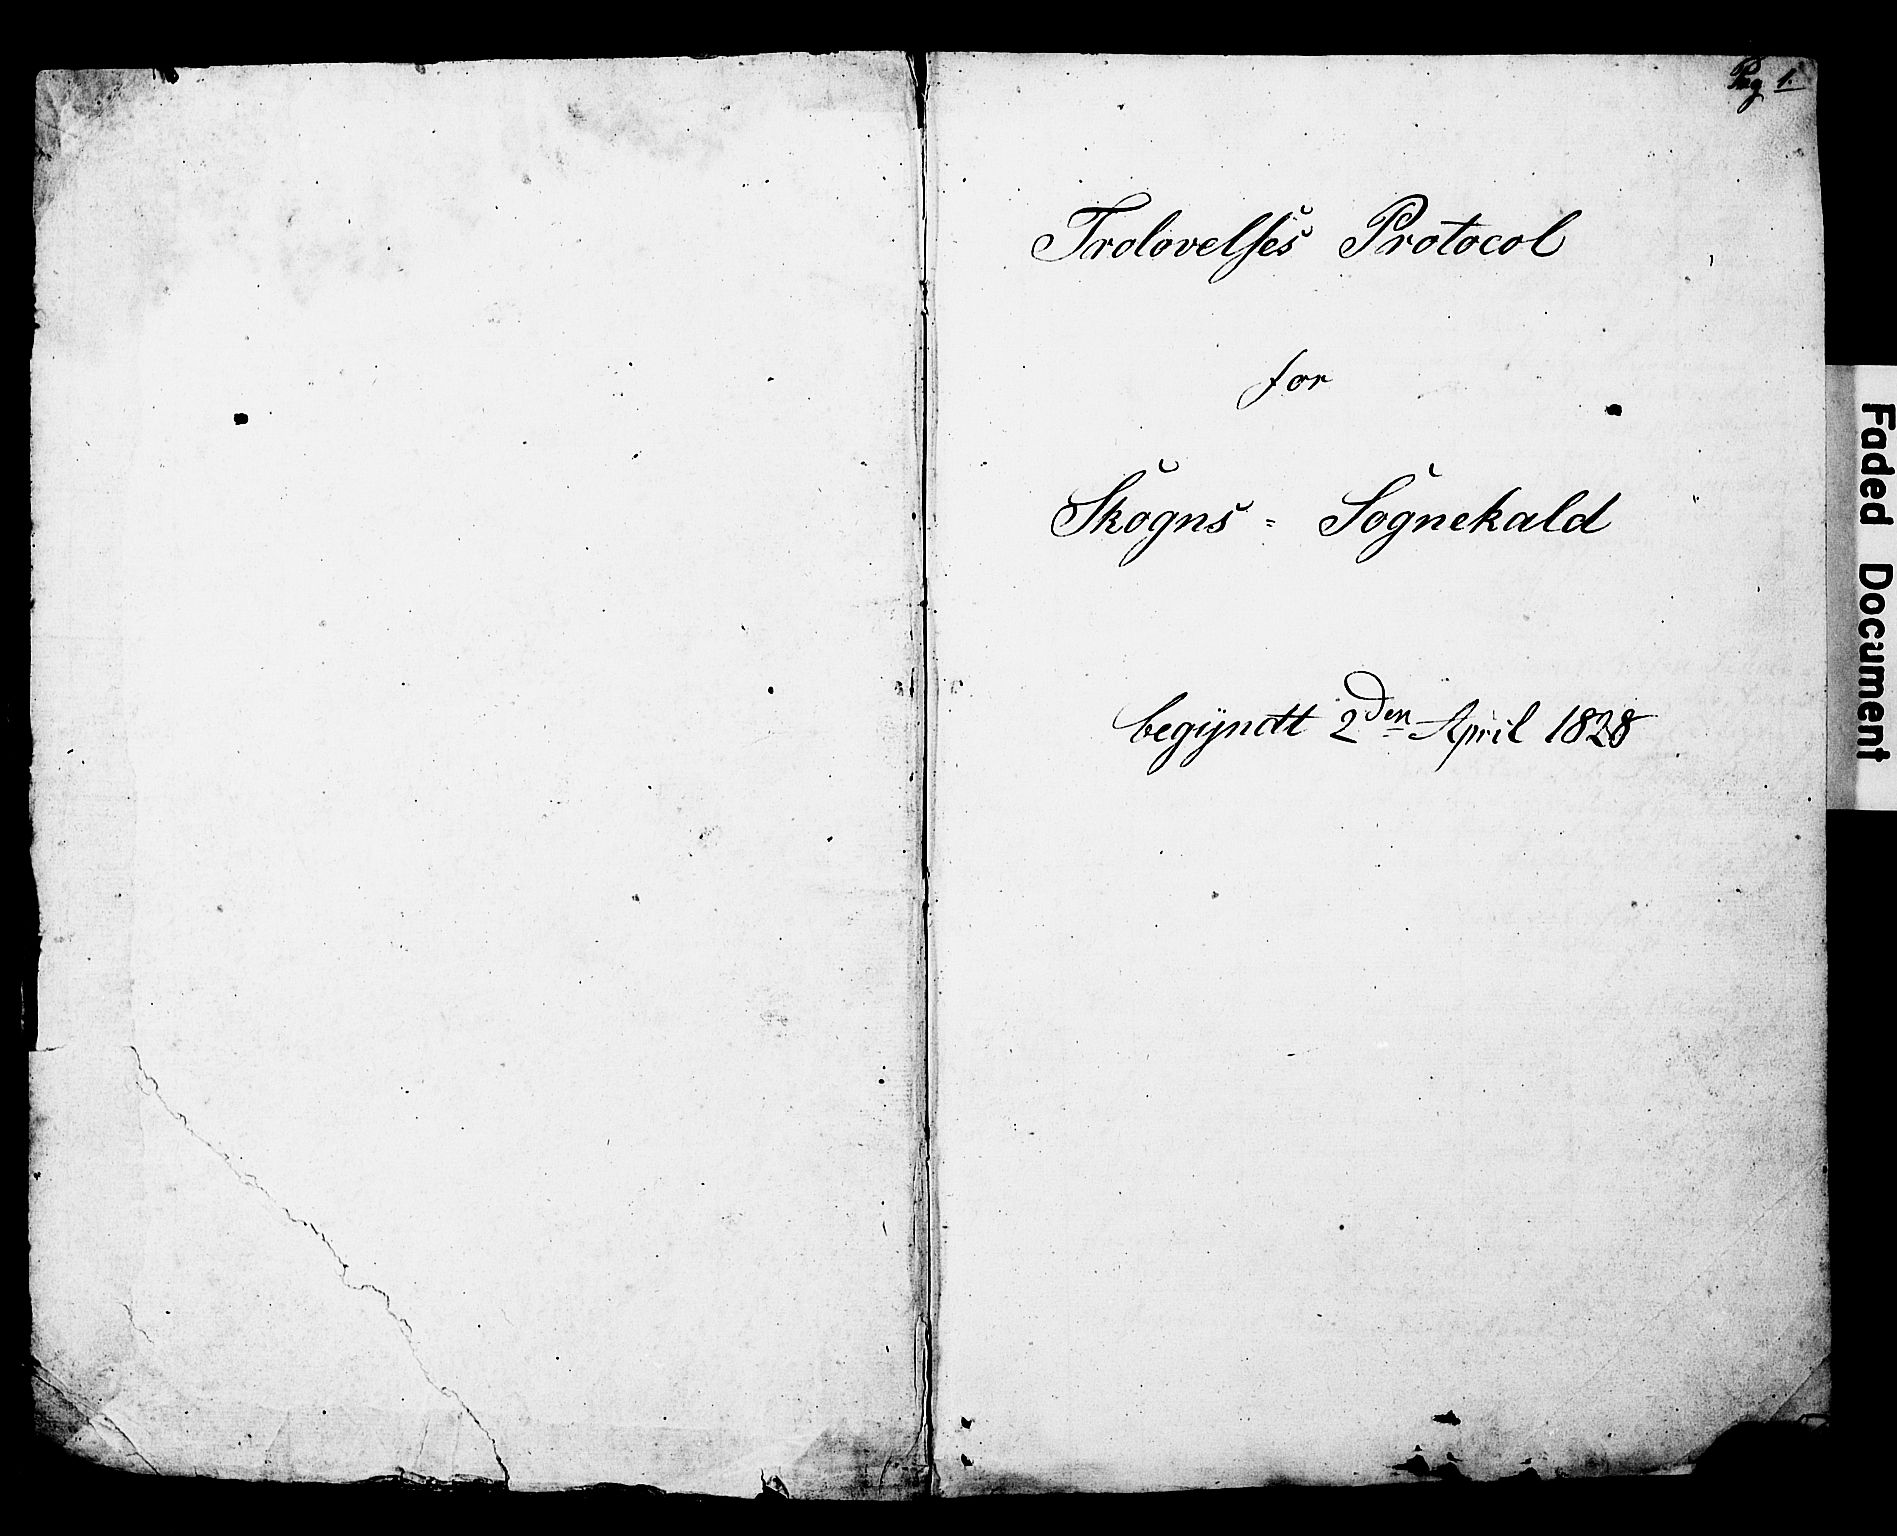 Pag 1.
Trolovelses Protocol
for
Skogns = Sognekald
begyndt 2den April 1828
Faded Document